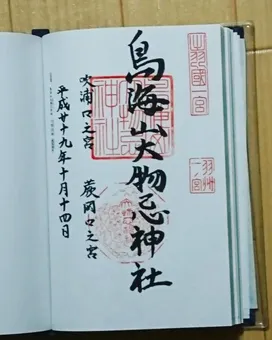 出羽國一宮
羽州
一ノ宮
鳥海山大物忌神社
吹浦口之宮
蕨岡口之宮
平成廿十九年十月十四日